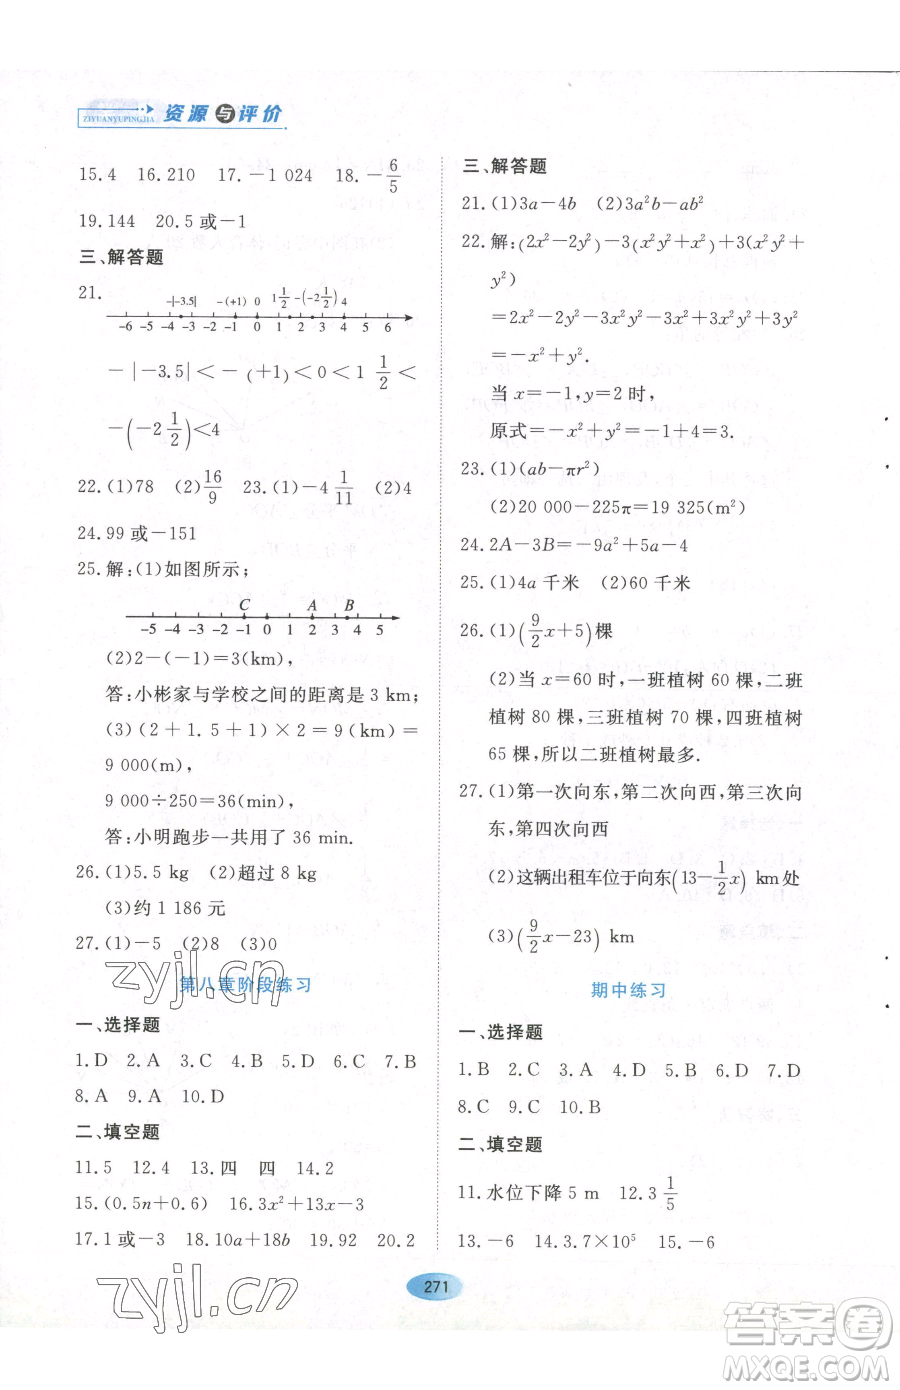 资源与评价
ZIYUANYUPINGJIA
15.4 16.210 17.-1 024 18.-6/5
19.144 20.5或-1
三、解答题
21.
-|-3.5| -(+1) 0 1 1/2 -(-2 1/2) 4
-6 -5 -4 -3 -2 -1 0 1 2 3 4 5 6
-|-3.5|<-(+1)<0<1 1/2<
-(-2 1/2)<4
22.(1)78 (2)16/9 23.(1)-4 1/11 (2)4
24.99或-151
25.解:(1)如图所示;
C A B
-5 -4 -3 -2 -1 0 1 2 3 4 5
(2)2-(-1)=3(km),
答:小彬家与学校之间的距离是3 km;
(3)(2+1.5+1)×2=9(km)=
9 000(m),
9 000÷250=36(min),
答:小明跑步一共用了36 min.
26.(1)5.5 kg (2)超过8 kg
(3)约1 186元
27.(1)-5 (2)8 (3)0
第八章阶段练习
一、选择题
1.D 2.A 3.C 4.B 5.D 6.C 7.B
8.A 9.A 10.D
二、填空题
11.5 12.4 13.四 四 14.2
15.(0.5n+0.6) 16.3x²+13x-3
17.1或-3 18.10a+18b 19.92 20.2
三、解答题
21.(1)3a-4b (2)3a²b-ab²
22.解:(2x²-2y²)-3(x²y²+x²)+3(x²y²+
y²)
=2x²-2y²-3x²y²-3x²+3x²y²+3y²
=-x²+y².
当x=-1,y=2时,
原式=-x²+y²=-1+4=3.
23.(1)(ab-πr²)
(2)20 000-225π=19 325(m²)
24.2A-3B=-9a²+5a-4
25.(1)4a千米 (2)60千米
26.(1)(9/2x+5)棵
(2)当x=60时,一班植树60棵,二班
植树80棵,三班植树70棵,四班植树
65棵,所以二班植树最多.
27.(1)第一次向东,第二次向西,第三次向
东,第四次向西
(2)这辆出租车位于向东(13-1/2x) km处
(3)(9/2x-23) km
期中练习
一、选择题
1.B 2.C 3.A 4.C 5.B 6.D 7.D
8.C 9.C 10.B
二、填空题
11.水位下降5 m 12.3 1/5
13.-6 14.3.7×10⁵ 15.-6
271
zyjl.cn
zyjl.cn
答案圈
MXQE.COM